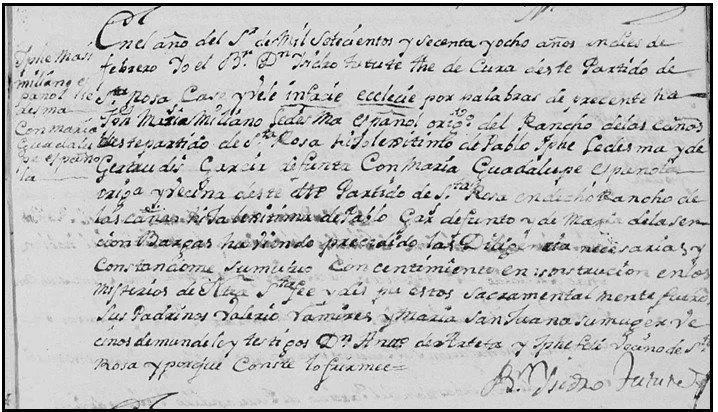 Jphe Maxi
miliano es
pañol Le
desma
Con maria
Guadalu
pe españo
la
En el año del Sr. de Mil Setecientos y Secenta y ocho años en dies de
febrero Yo el Br. Dn Ysidro tutute the de Cura deste Partido de
Sta Rosa Case y Vele infacie ecclecie por palabras de precente ha
Jph Maximiliano Ledesma español orig.o del Rancho de las cañas
deste partido de Sta Rosa hijo lexitimo de Pablo Jphe Ledesma y de
Gertrudis Garcia difunta Con Maria Guadalupe Española
orig.a y vecina deste Partido de Sta Rosa en dicho Rancho de
las cañas hija lexitima de Pablo Gar defunto y de Maria de la
cion Bargas haviendo precedido las Diligencia necesarias y
Constandome su mutuo Concentimiento en instrucion en los
misterios de Ntra Sta fee y asis por estos Sacramentalmente fueron
Sus Padrinos Valerio Ramires y Maria San Juana su muger Ve
cinos de y testigos Dn Anto de Arteta y Jphe Feli Vecino de Sta
Rosa y porque Conste lo firme=
Br. Ysidro Tutute